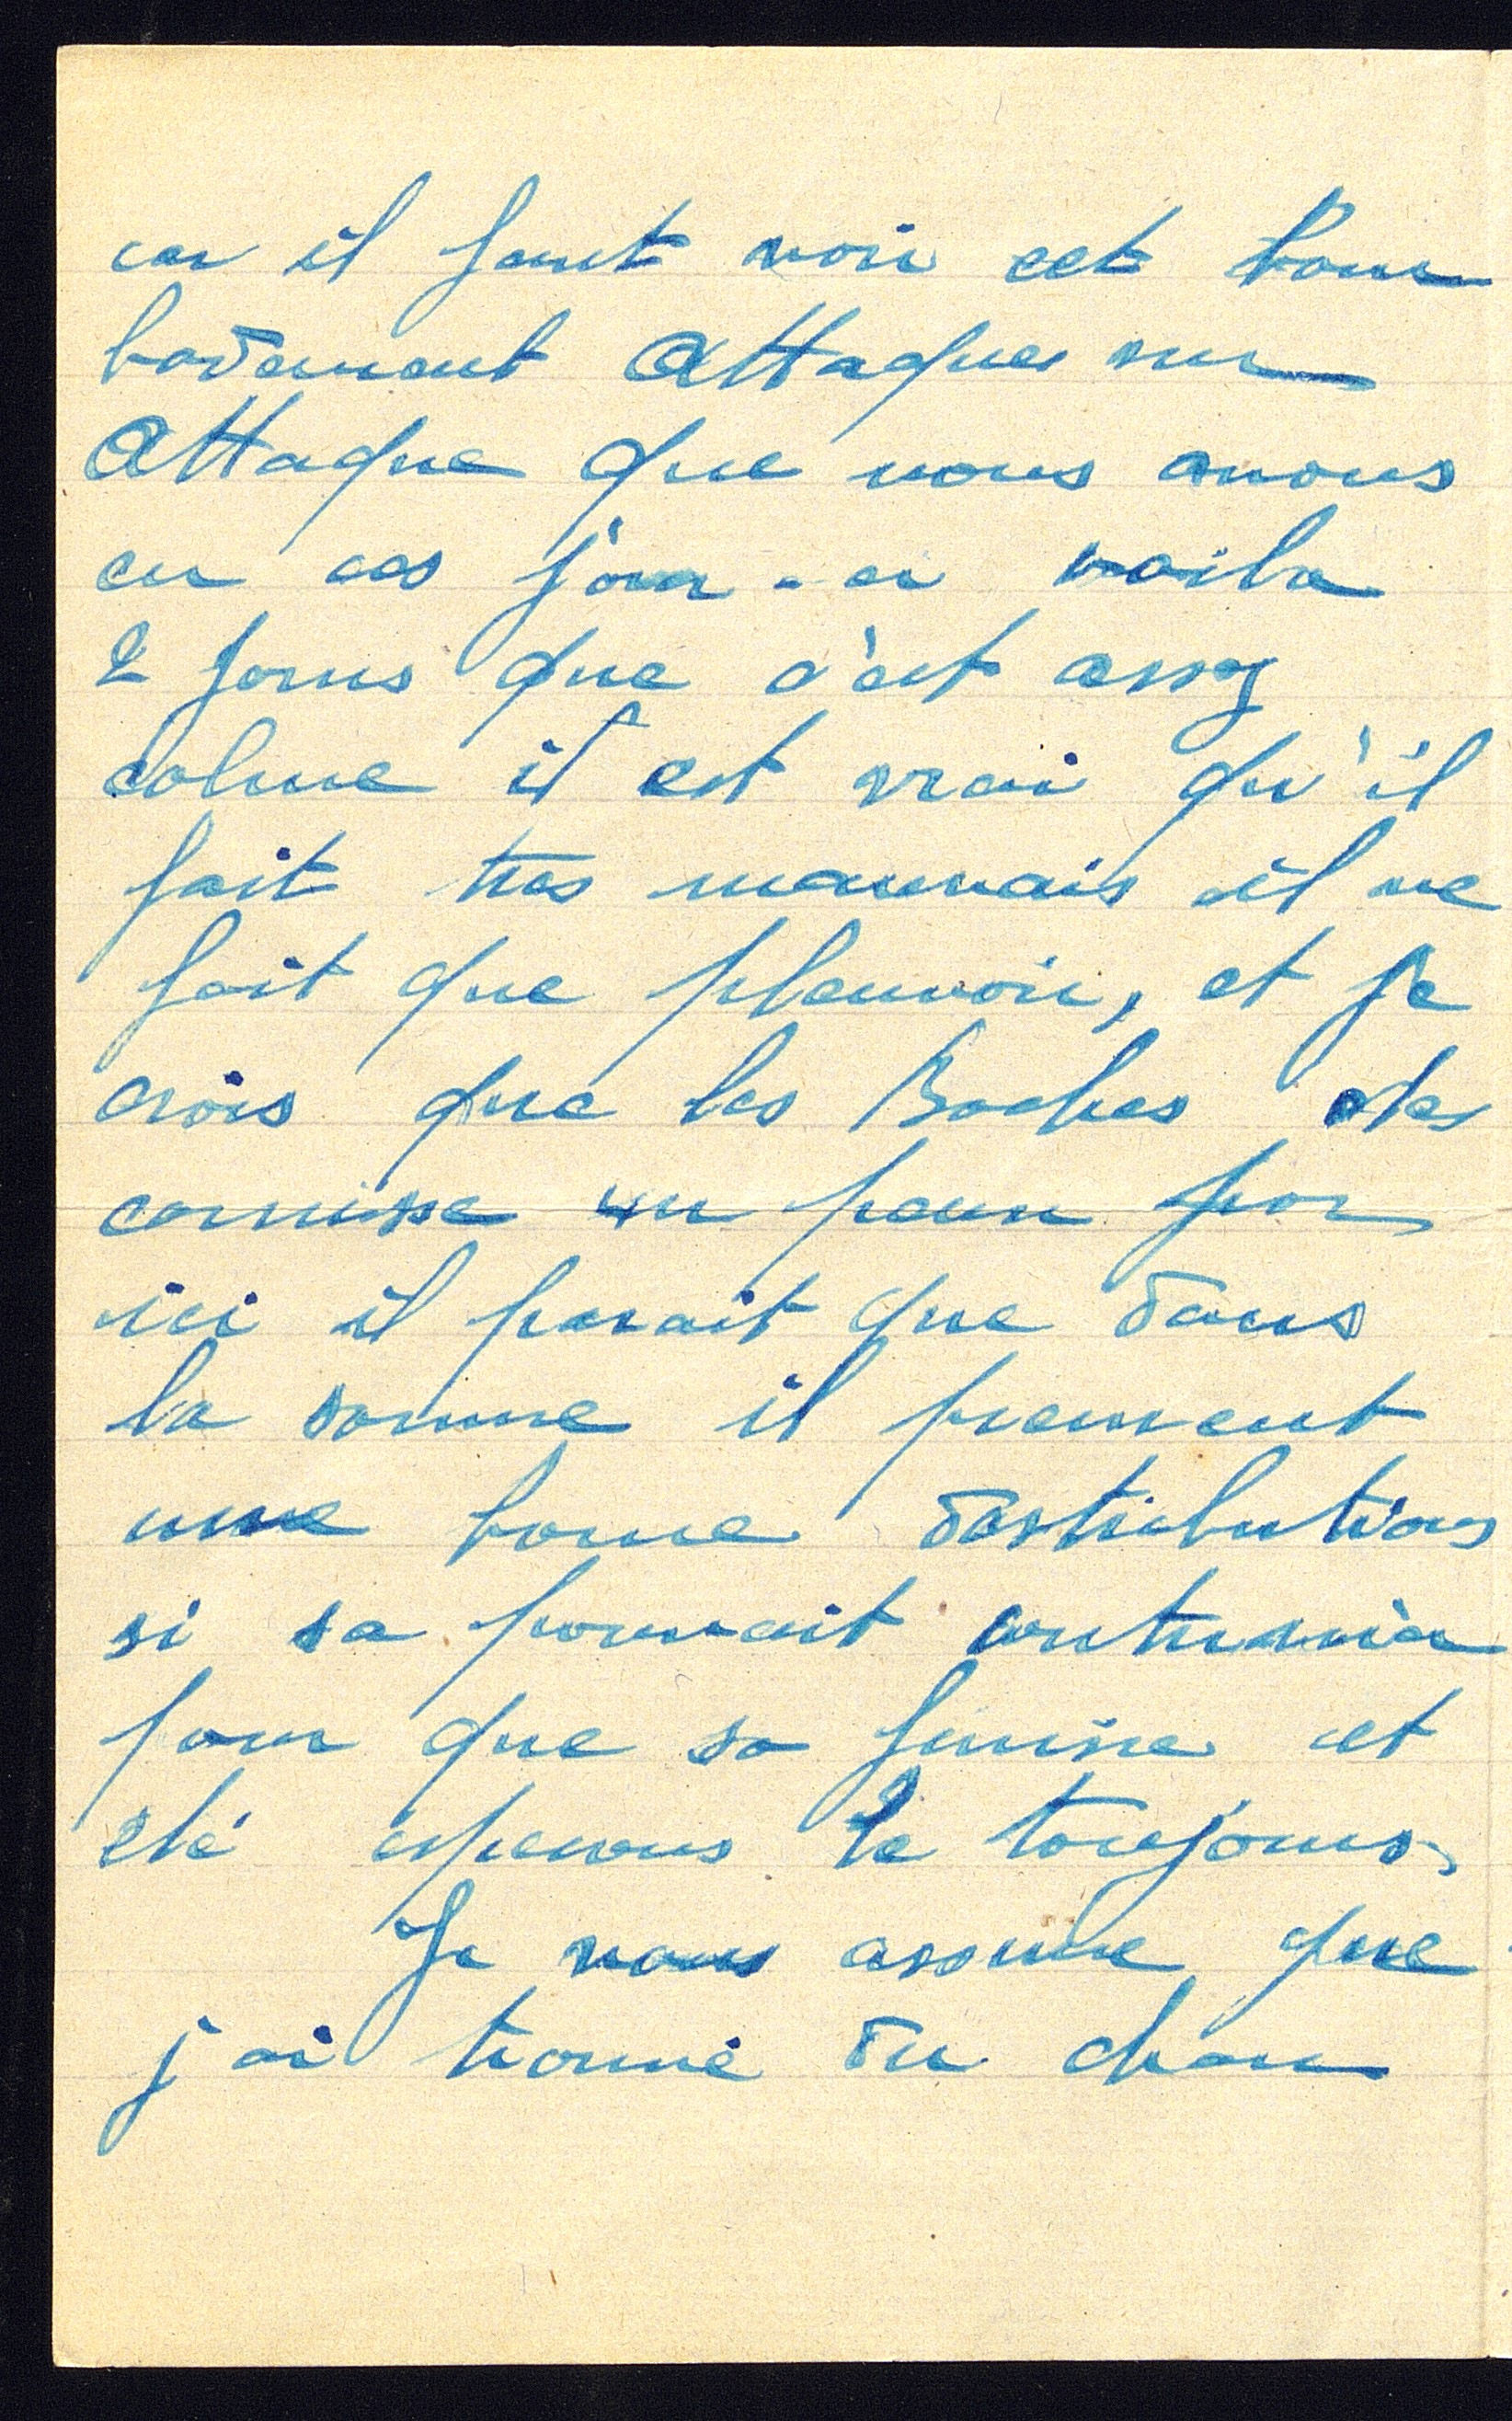 car il faut voir cet bom
bardement Attaques sur
Attaque que nous avons
eu ces jour-ci voila
2 jours que c'est assez
calme il est vrai qu'il
fait tres mauvais il ne
fait que pleuvoir, et je
crois que les Boches
un peau par
ici il parait que dans
la somme il prennent
une bonne distribution
si sa pouvait continuer
pour que sa finisse cet
été esperons le toujours
Je vous assure que
j ai trouvé du chan